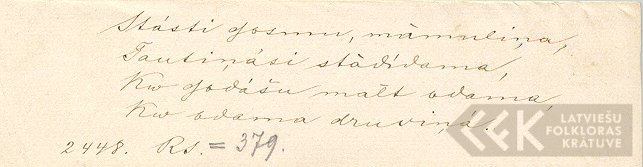 Stásti gosmu, mâmuliņa,
Tautiņási stâdídama,
Kw godášu malt ędama,
Kw ędama druviņá.
2448. Rs. = 379.
LATVIEŠU
FOLKLORAS
KRĀTUVE